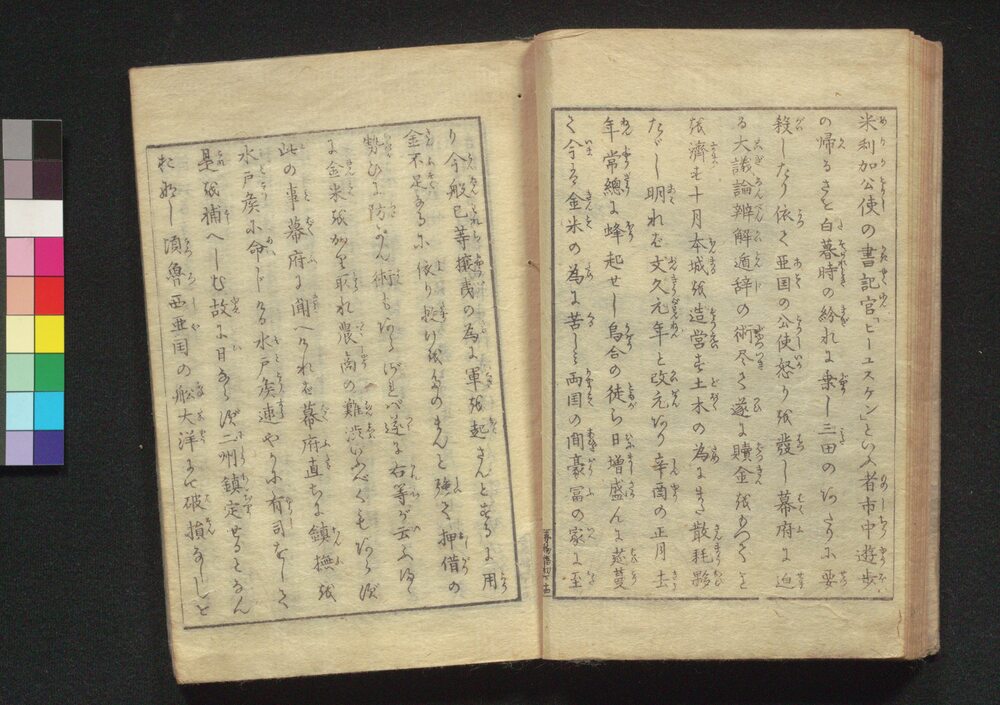 米利加公使の書記官「ヒースケン」といふ者市中遊歩
の帰るさを白暮時の紛れに乗し三田のほとりに要
殺したり依て亜国の公使怒りを發し幕府に迫
る大議論辨解遁辞の術尽き遂に贖金をもつてこと
を濟せ十月本城を造営す土木の為に
たゞし明れば文久元年と改元あり辛酉の正月去
年常總に蜂起せし烏合の徒ら日増盛んに蔓
て今は金米の為に苦しミ両国の間豪冨の家に至
り今般已等攘夷の為に軍を起さんとするに用
金不足なるに依り助けを給のまんと強て押借の
勢ひに防がん術もあらざれば遂に右等が云ふ侭
に金米を加え取れ農商の難渋いふべくもあらず
此の事幕府に聞へければ幕府直ちに鎮撫を
水戸矦に命じける水戸矦速やかに有司をして
是を捕へしむ故に日ならず二州鎮定せるとなん
頃魯西亜国の舩大洋にて破損なしと